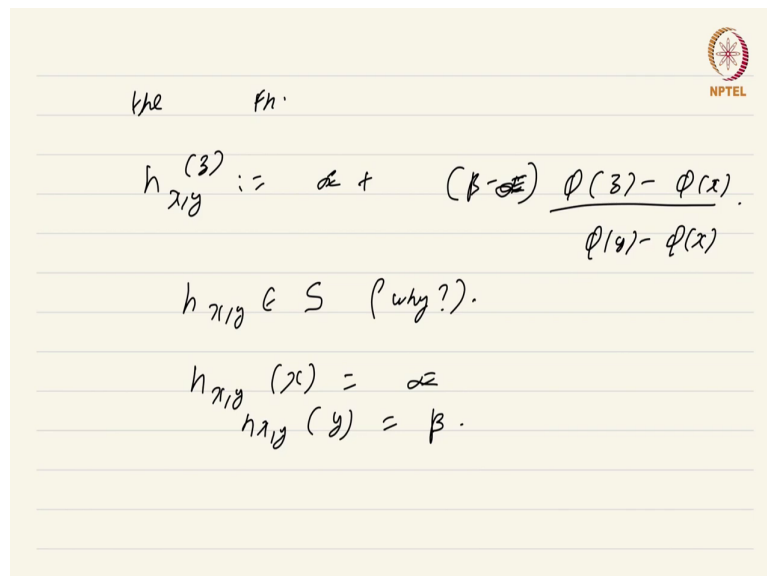 NPTEL
the fn.
h_{x,y}(z) := α + (β-α) \frac{φ(z) - φ(x)}{φ(y) - φ(x)}.
h_{x,y} ∈ S (why?).
h_{x,y}(x) = α
h_{x,y}(y) = β.